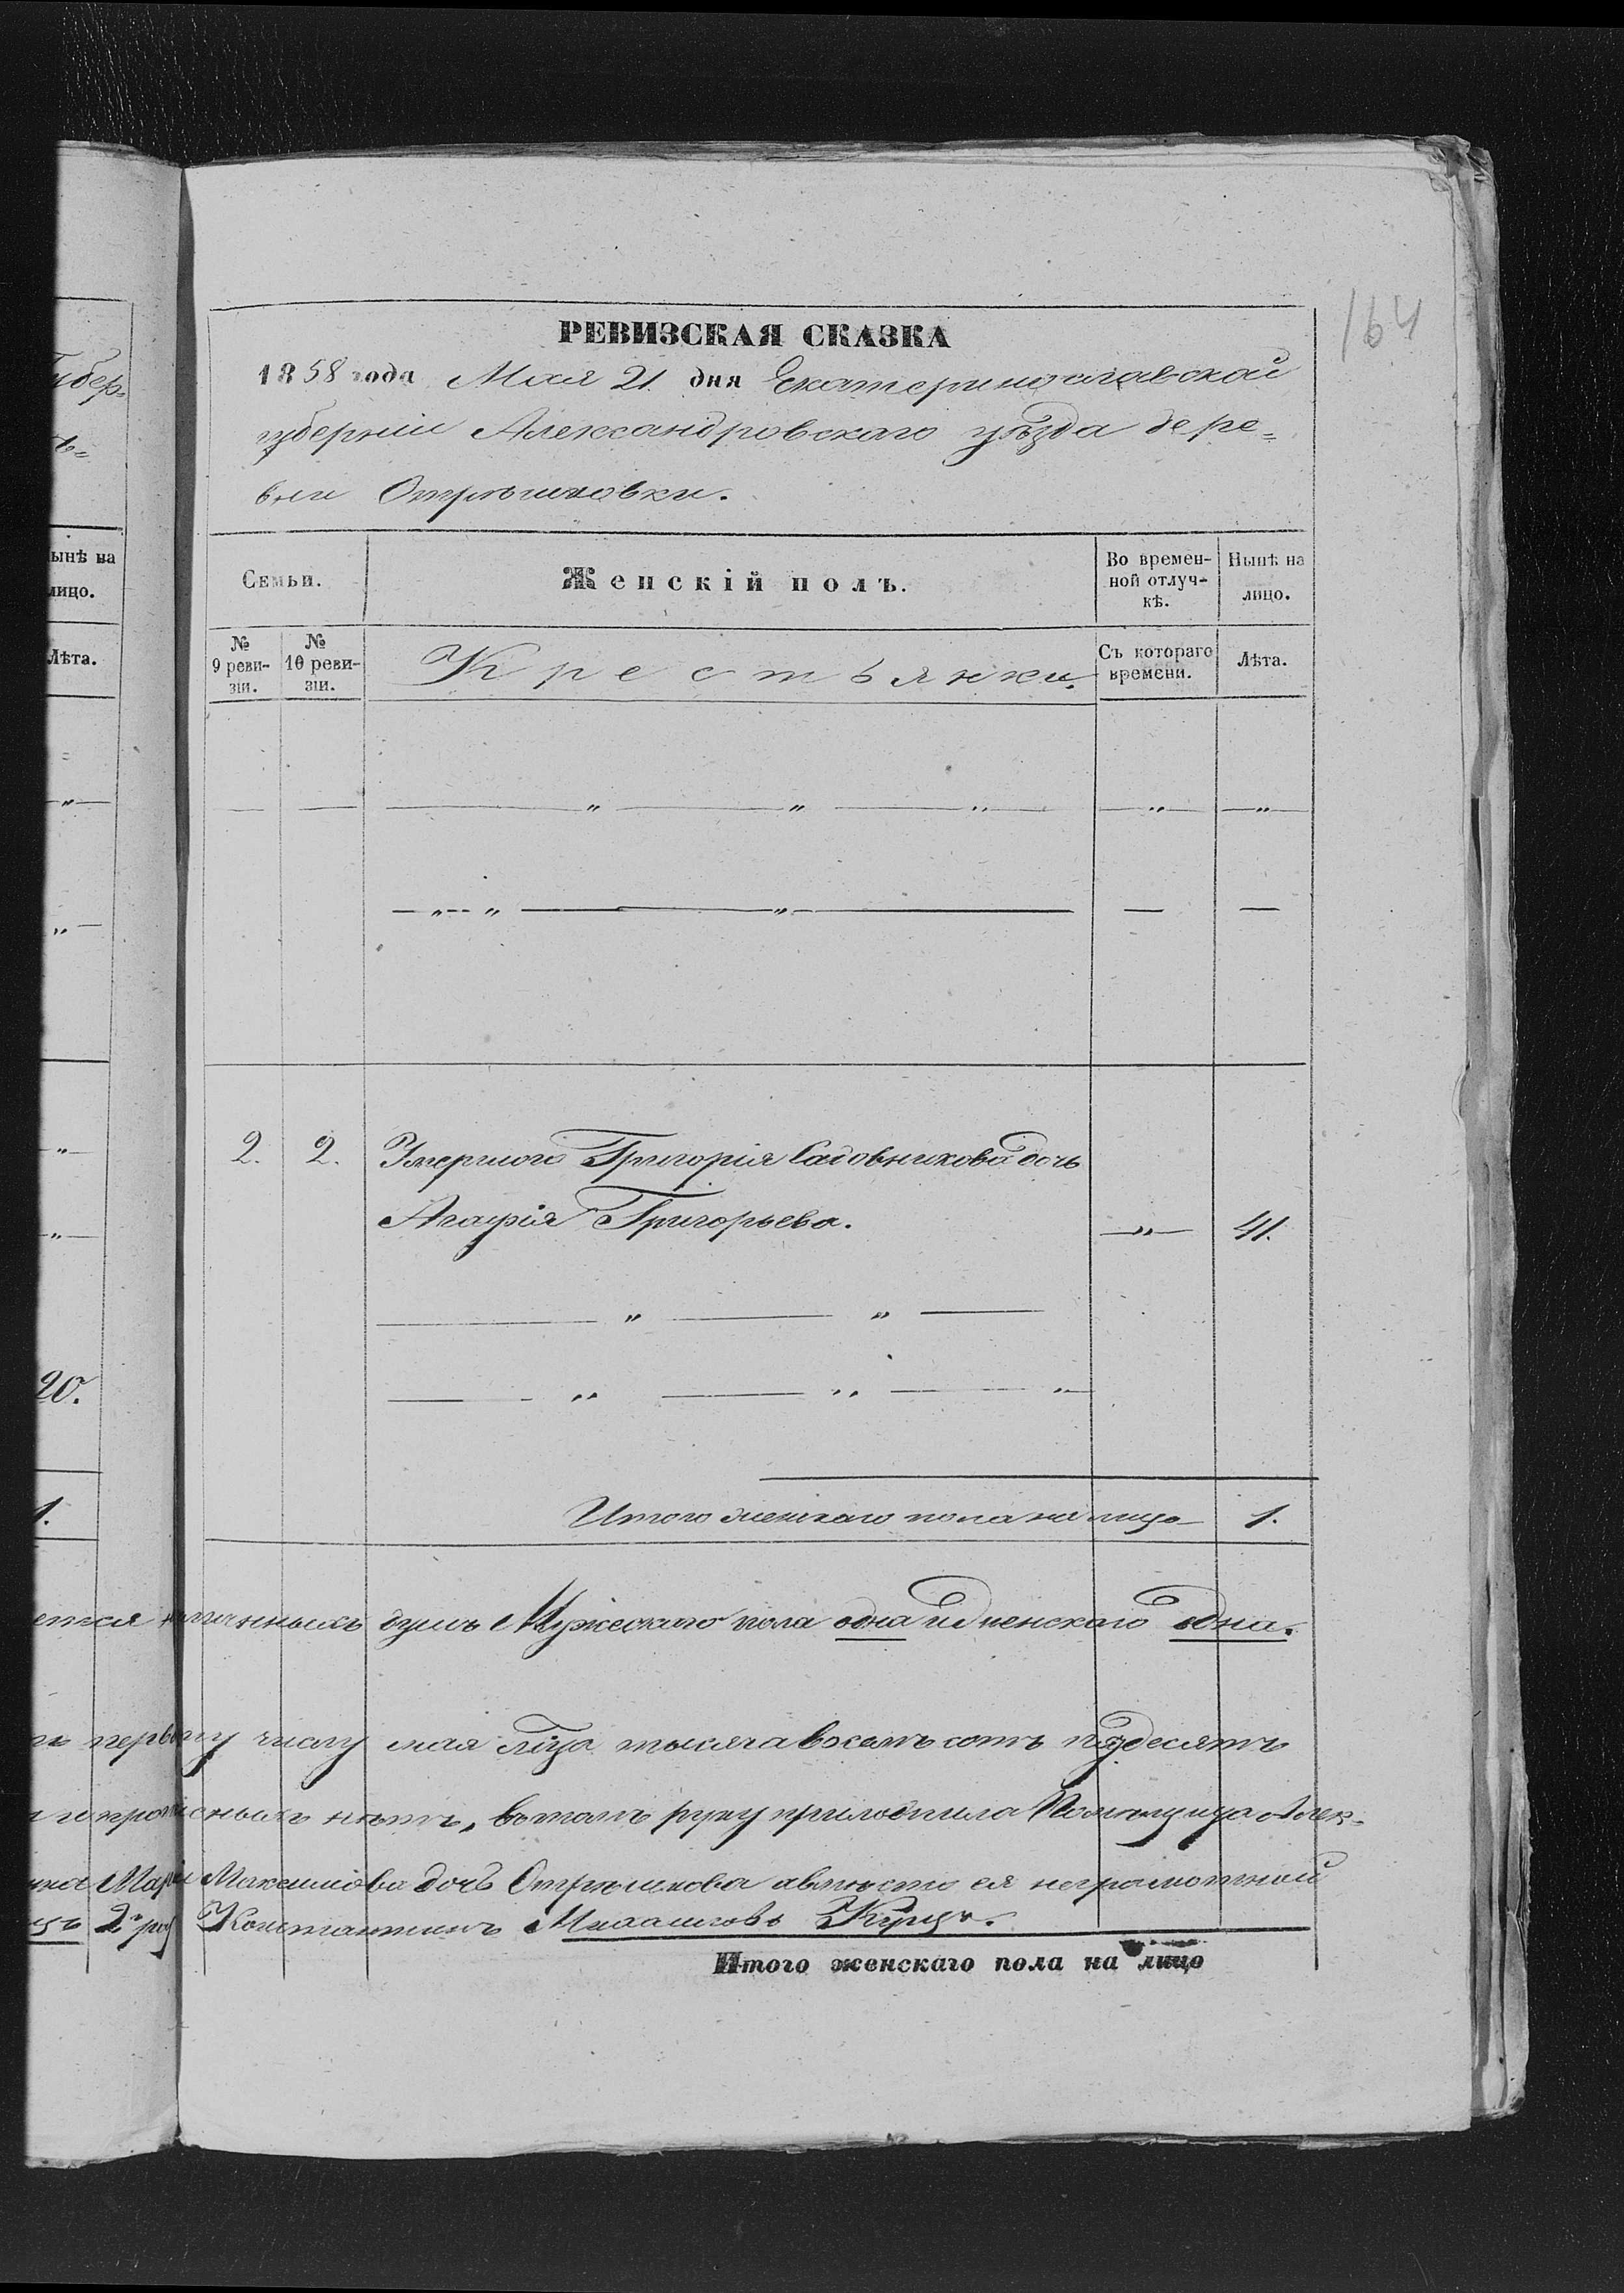 164
РЕВИЗСКАЯ СКАЗКА
1858 года Мая 21. дня Екатеринославской
губерніи Александровскаго уѣзда дере=
вни Отрѣшковки.
Семьи.
Женскій полъ.
Во времен-
ной отлуч-
кѣ.
Нынѣ на
лицо.
№
9 реви-
зіи.
№
10 реви-
зіи.
Крестьянки.
Съ котораго
времени.
Лѣта.
2. 2. Умершого Григорія Садовникова дочь
Агафія Григорьева. 41.
Итого женскаго пола на лицо 1.
наличныхъ душъ Мужескаго пола одна и женскаго одна.
первому числу мая тысяча восемъ сотъ пядесятъ
нѣтъ, въ томъ руку приложила Помѣщица Алек-
Марія Максимова дочь Отрѣшкова а вмѣсто ея неграмотной
2й Константинъ Михаиловъ
Итого женскаго пола на лицо
губер=
ынѣ на
лицо.
Лѣта.
20.
1.